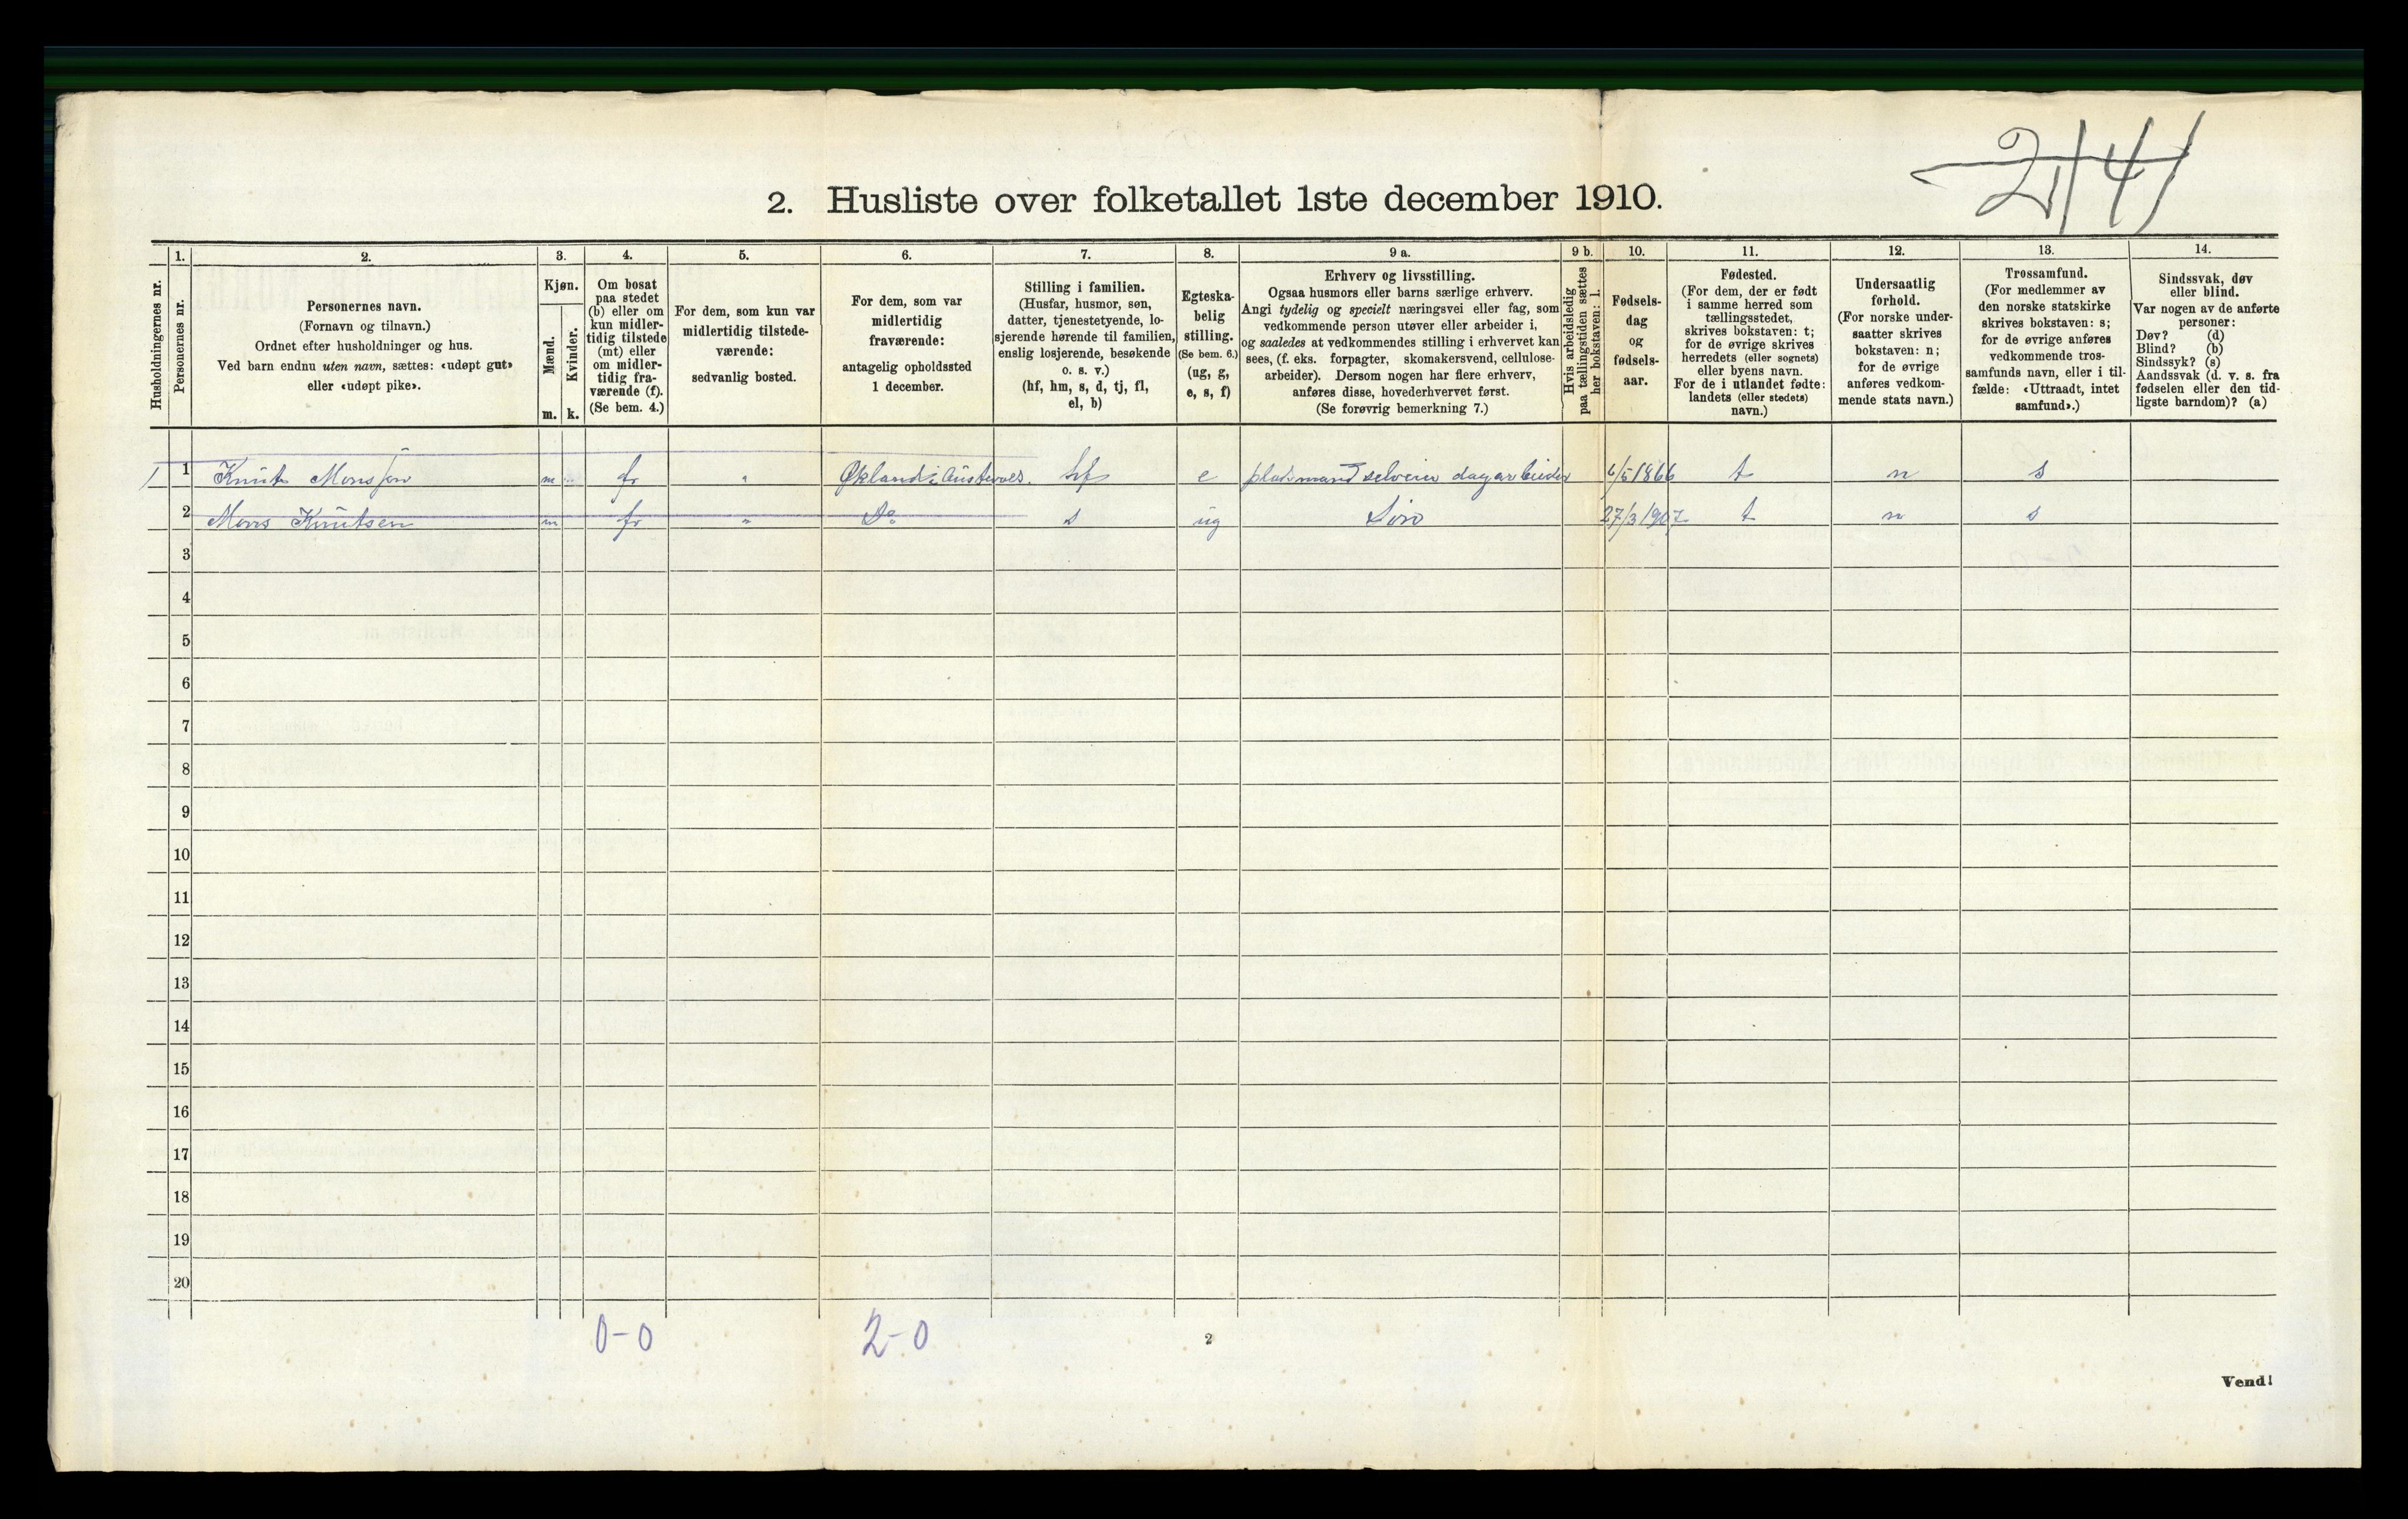 2. Husliste over folketallet 1ste december 1910.
Husholdningernes nr.
1.
Personernes nr.
2.
Personernes navn.
(Fornavn og tilnavn.)
Ordnet efter husholdninger og hus.
Ved barn endnu uten navn, sættes: «udøpt gut»
eller «udøpt pike».
3.
Kjøn.
Mænd.
Kvinder.
m. k.
4.
Om bosat
paa stedet
(b) eller om
kun midler-
tidig tilstede
(mt) eller
om midler-
tidig fra-
værende (f).
(Se bem. 4.)
5.
For dem, som kun var
midlertidig tilstede-
værende:
sedvanlig bosted.
6.
For dem, som var
midlertidig
fraværende:
antagelig opholdssted
1 december.
7.
Stilling i familien.
(Husfar, husmor, søn,
datter, tjenestetyende, lo-
sjerende hørende til familien,
enslig losjerende, besøkende
o. s. v.)
(hf, hm, s, d, tj, fl,
el, b)
8.
Egteska-
belig
stilling.
(Se bem. 6.)
(ug, g,
e, s, f)
9 a.
Erhverv og livsstilling.
Ogsaa husmors eller barns særlige erhverv.
Angi tydelig og specielt næringsvei eller fag, som
vedkommende person utøver eller arbeider i,
og saaledes at vedkommendes stilling i erhvervet kan
sees, (f. eks. forpagter, skomakersvend, cellulose-
arbeider). Dersom nogen har flere erhverv,
anføres disse, hovederhvervet først.
(Se forøvrig bemerkning 7.)
9 b.
Hvis arbeidsledig
paa tællingstiden sættes
her bokstaven: l.
10.
Fødsels-
dag
og
fødsels-
aar.
11.
Fødested.
(For dem, der er født
i samme herred som
tællingsstedet,
skrives bokstaven: t;
for de øvrige skrives
herredets (eller sognets)
eller byens navn.
For de i utlandet fødte:
landets (eller stedets)
navn.)
12.
Undersaatlig
forhold.
(For norske under-
saatter skrives
bokstaven: n;
for de øvrige
anføres vedkom-
mende stats navn.)
13.
Trossamfund.
(For medlemmer av
den norske statskirke
skrives bokstaven: s;
for de øvrige anføres
vedkommende tros-
samfunds navn, eller i til-
fælde: «Uttraadt, intet
samfund».)
14.
Sindssvak, døv
eller blind.
Var nogen av de anførte
personer:
Døv? (d)
Blind? (b)
Sindssyk? (s)
Aandssvak (d. v. s. fra
fødselen eller den tid-
ligste barndom)? (a)
1 1 Knut Monsson m fr " Økland i Austevoll. hf e platsmand selveier dagarbeider 6/5 1866 t n s
2 Mons Knutsen m fr " Do s ug Søn 27/3 1907 t n s
3
4
5
6
7
8
9
10
11
12
13
14
15
16
17
18
19
20
0-0 2-0 2
Vend!